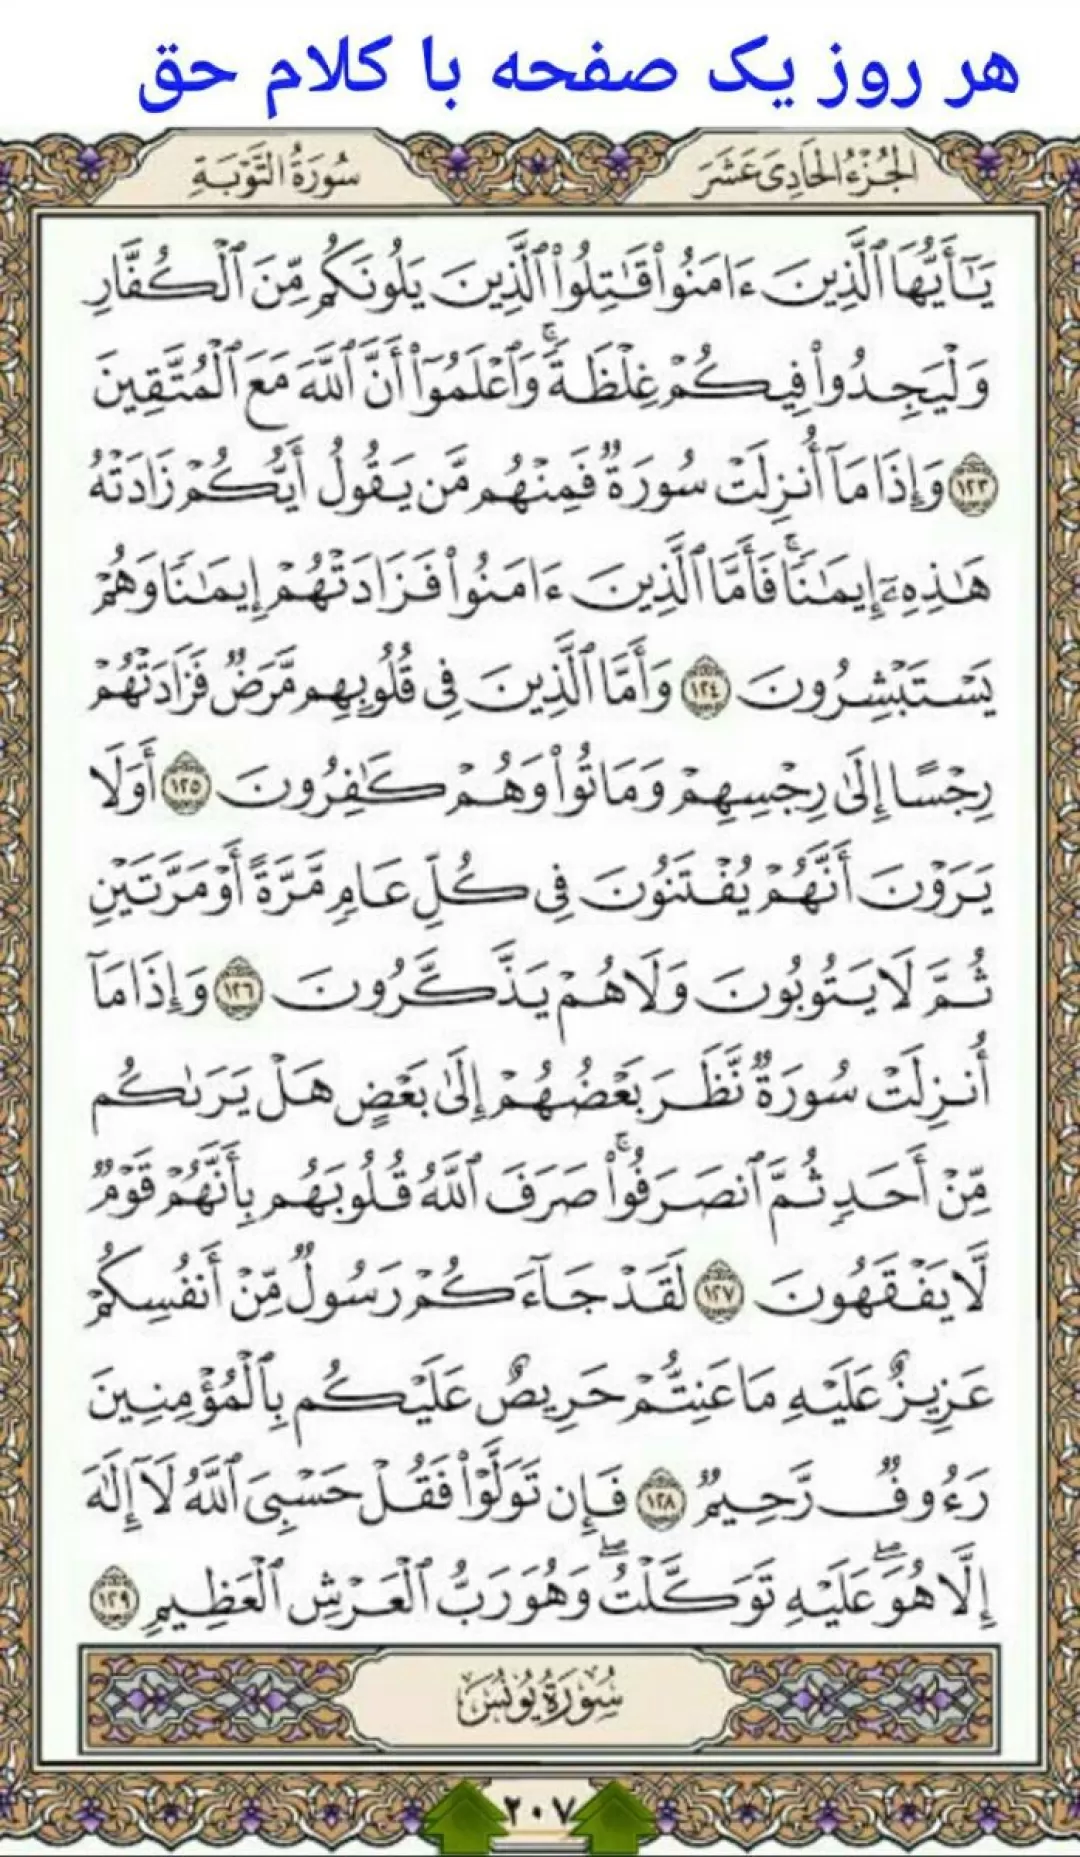 هر روز یک صفحه با کلام حق
الجُزْءُ الحَادِیَ عَشَرَ
سُورَةُ التَّوْبَةِ
يَٰٓأَيُّهَا ٱلَّذِينَ ءَامَنُوا۟ قَٰتِلُوا۟ ٱلَّذِينَ يَلُونَكُم مِّنَ ٱلْكُفَّارِ
وَلْيَجِدُوا۟ فِيكُمْ غِلْظَةً ۚ وَٱعْلَمُوٓا۟ أَنَّ ٱللَّهَ مَعَ ٱلْمُتَّقِينَ
١٢٣ وَإِذَا مَآ أُنزِلَتْ سُورَةٌ فَمِنْهُم مَّن يَقُولُ أَيُّكُمْ زَادَتْهُ
هَٰذِهِۦٓ إِيمَٰنًا ۚ فَأَمَّا ٱلَّذِينَ ءَامَنُوا۟ فَزَادَتْهُمْ إِيمَٰنًا وَهُمْ
يَسْتَبْشِرُونَ ١٢٤ وَأَمَّا ٱلَّذِينَ فِى قُلُوبِهِم مَّرَضٌ فَزَادَتْهُمْ
رِجْسًا إِلَىٰ رِجْسِهِمْ وَمَاتُوا۟ وَهُمْ كَٰفِرُونَ ١٢٥ أَوَلَا
يَرَوْنَ أَنَّهُمْ يُفْتَنُونَ فِى كُلِّ عَامٍ مَّرَّةً أَوْ مَرَّتَيْنِ
ثُمَّ لَا يَتُوبُونَ وَلَا هُمْ يَذَّكَّرُونَ ١٢٦ وَإِذَا مَآ
أُنزِلَتْ سُورَةٌ نَّظَرَ بَعْضُهُمْ إِلَىٰ بَعْضٍ هَلْ يَرَىٰكُم
مِّنْ أَحَدٍ ثُمَّ ٱنصَرَفُوا۟ ۚ صَرَفَ ٱللَّهُ قُلُوبَهُم بِأَنَّهُمْ قَوْمٌ
لَّا يَفْقَهُونَ ١٢٧ لَقَدْ جَآءَكُمْ رَسُولٌ مِّنْ أَنفُسِكُمْ
عَزِيزٌ عَلَيْهِ مَا عَنِتُّمْ حَرِيصٌ عَلَيْكُم بِٱلْمُؤْمِنِينَ
رَءُوفٌ رَّحِيمٌ ١٢٨ فَإِن تَوَلَّوْا۟ فَقُلْ حَسْبِىَ ٱللَّهُ لَآ إِلَٰهَ
إِلَّا هُوَ ۖ عَلَيْهِ تَوَكَّلْتُ ۖ وَهُوَ رَبُّ ٱلْعَرْشِ ٱلْعَظِيمِ ١٢٩
سُورَةُ يُونُسَ
٢٠٧